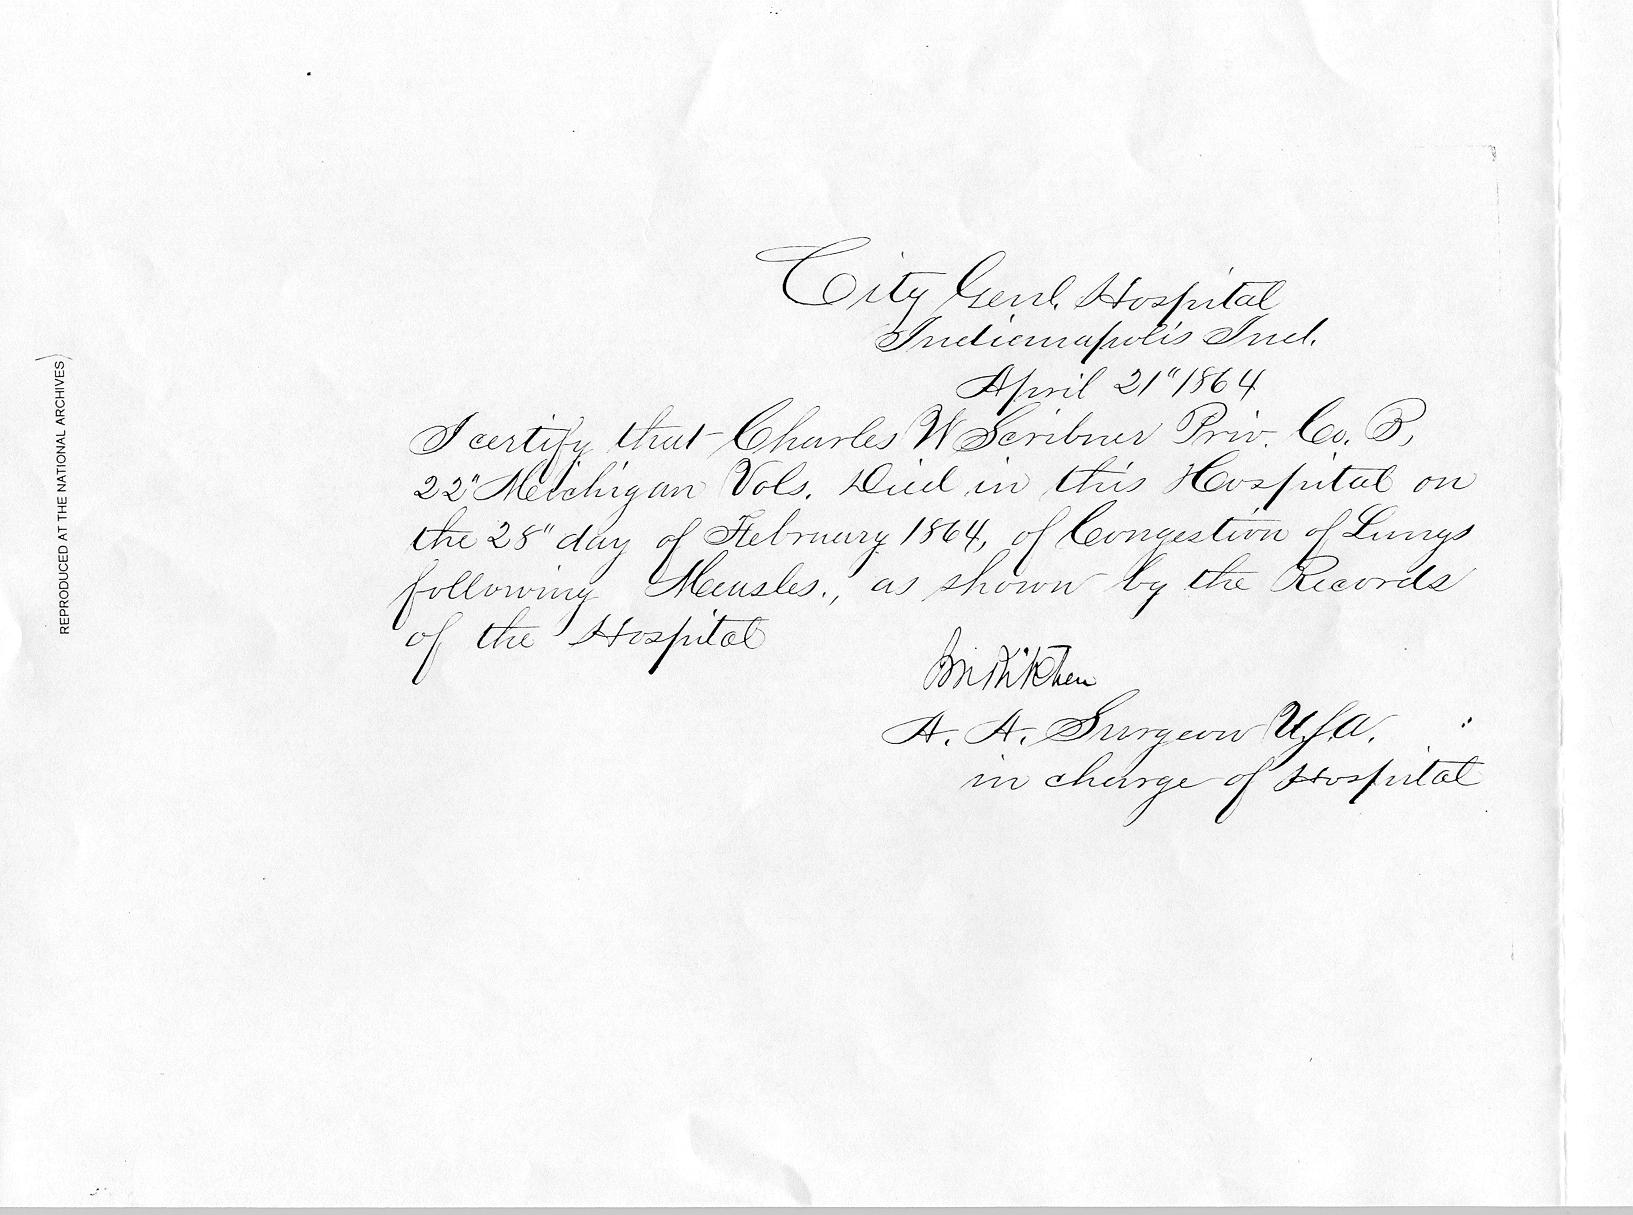 City Genl. Hospital
Indianapolis Ind.
April 21" 1864
I certify that Charles W Scribner Priv. Co. B,
22" Michigan Vols. Died in this Hospital on
the 28" day of February 1864, of Congestion of Lungs
following Measles., as shown by the Records
of the Hospital
Kitchen
A. A. Surgeon U.S.A.
in charge of Hospital
REPRODUCED AT THE NATIONAL ARCHIVES